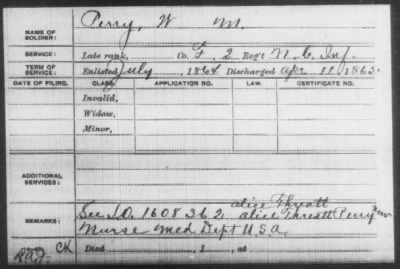 NAME OF SOLDIER: Perry, W M.
SERVICE: Late rank, Co. F, 2 Reg't N. C. Inf.
TERM OF SERVICE: Enlisted July , 1864 Discharged Apr 11, 1865.
DATE OF FILING. CLASS. APPLICATION NO. LAW. CERTIFICATE NO.
Invalid,
Widow,
Minor,
ADDITIONAL SERVICES:
alice Threatt
REMARKS: See S.O. 1608362 alice Threatt Perry now
Nurse Med Dept U.S.A.
CK Died , 1 , at